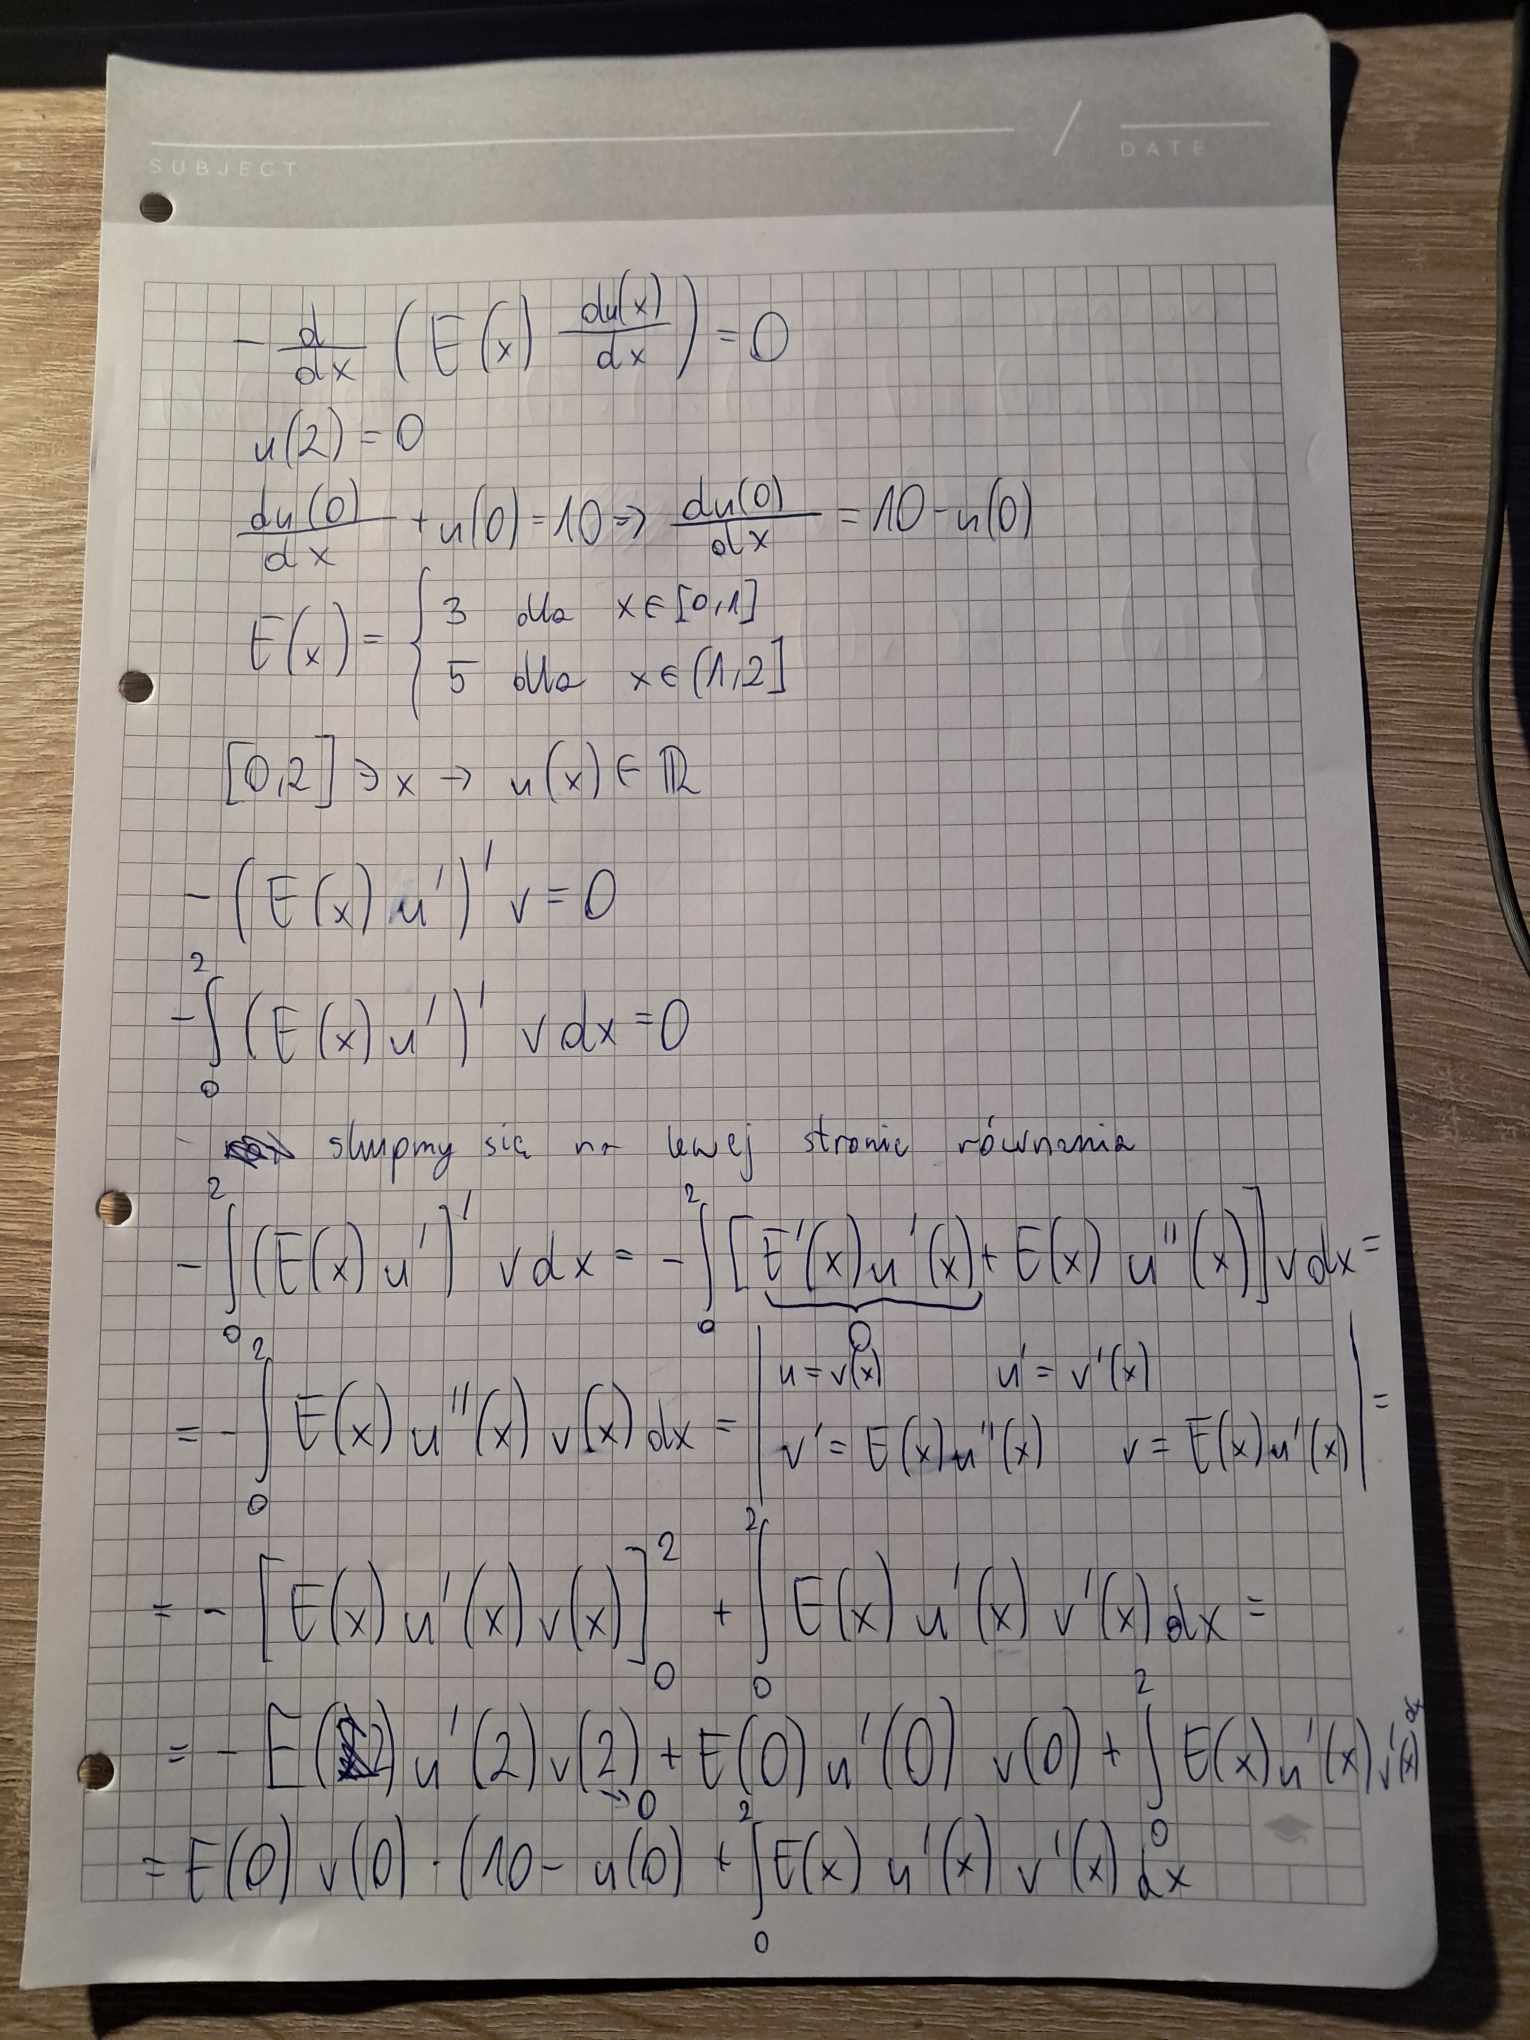 SUBJECT / DATE
- d/dx (E(x) du(x)/dx) = 0
u(2) = 0
du(0)/dx + u(0) = 10 => du(0)/dx = 10 - u(0)
E(x) = { 3 dla x ∈ [0,1]
5 dla x ∈ (1,2]
[0,2] ∋ x → u(x) ∈ ℝ
- (E(x) u')' v = 0
- ∫₀² (E(x) u')' v dx = 0
skupmy się na lewej stronie równania
- ∫₀² (E(x) u')' v dx = - ∫₀² [E'(x) u'(x) + E(x) u''(x)] v dx =
0
= - ∫₀² E(x) u''(x) v(x) dx = | u = v(x) u' = v'(x)
v' = E(x) u''(x) v = E(x) u'(x) | =
= - [E(x) u'(x) v(x)]₀² + ∫₀² E(x) u'(x) v'(x) dx =
= - E(2) u'(2) v(2) + E(0) u'(0) v(0) + ∫₀² E(x) u'(x) v'(x) dx
→ 0
= E(0) v(0) · (10 - u(0) + ∫₀² E(x) u'(x) v'(x) dx